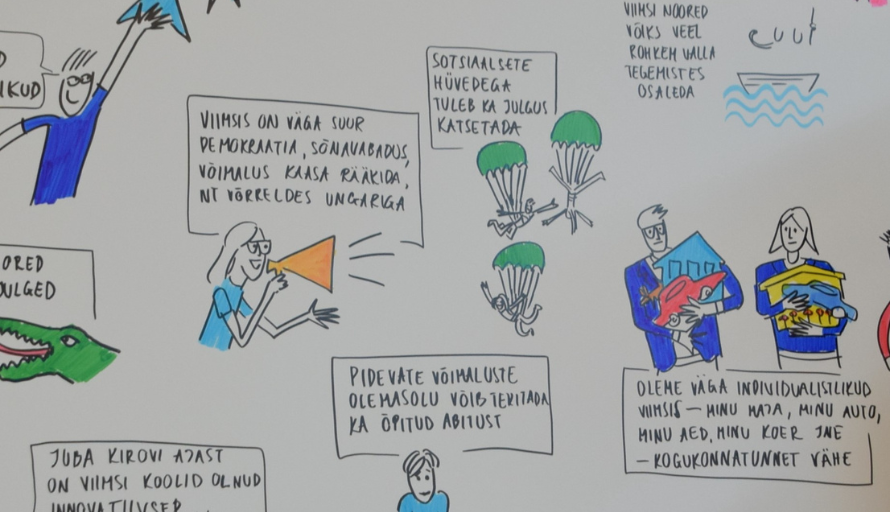 UIKUD
VIIMSIS ON VÄGA SUUR
DEMOKRAATIA, SÕNAVABADUS,
VÕIMALUS KAASA RÄÄKIDA,
NT VÕRRELDES UNGARIGA
SOTSIAALSETE
HÜVEDEGA
TULEB KA JULGUS
KATSETADA
VIIMSI NOORED
VÕIKS VEEL
ROHKEM VALLA
TEGEMISTES
OSALEDA
OORED
JULGED
PIDEVATE VÕIMALUSTE
OLEMASOLU VÕIB TEKITADA
KA ÕPITUD ABITUST
OLEME VÄGA INDIVIDUALISTLIKUD
VIIMSIS – MINU MAJA, MINU AUTO,
MINU AED, MINU KOER JNE
– KOGUKONNATUNNET VÄHE
JUBA KIROVI AJAST
ON VIIMSI KOOLID OLNUD
INNOVATIIVSED